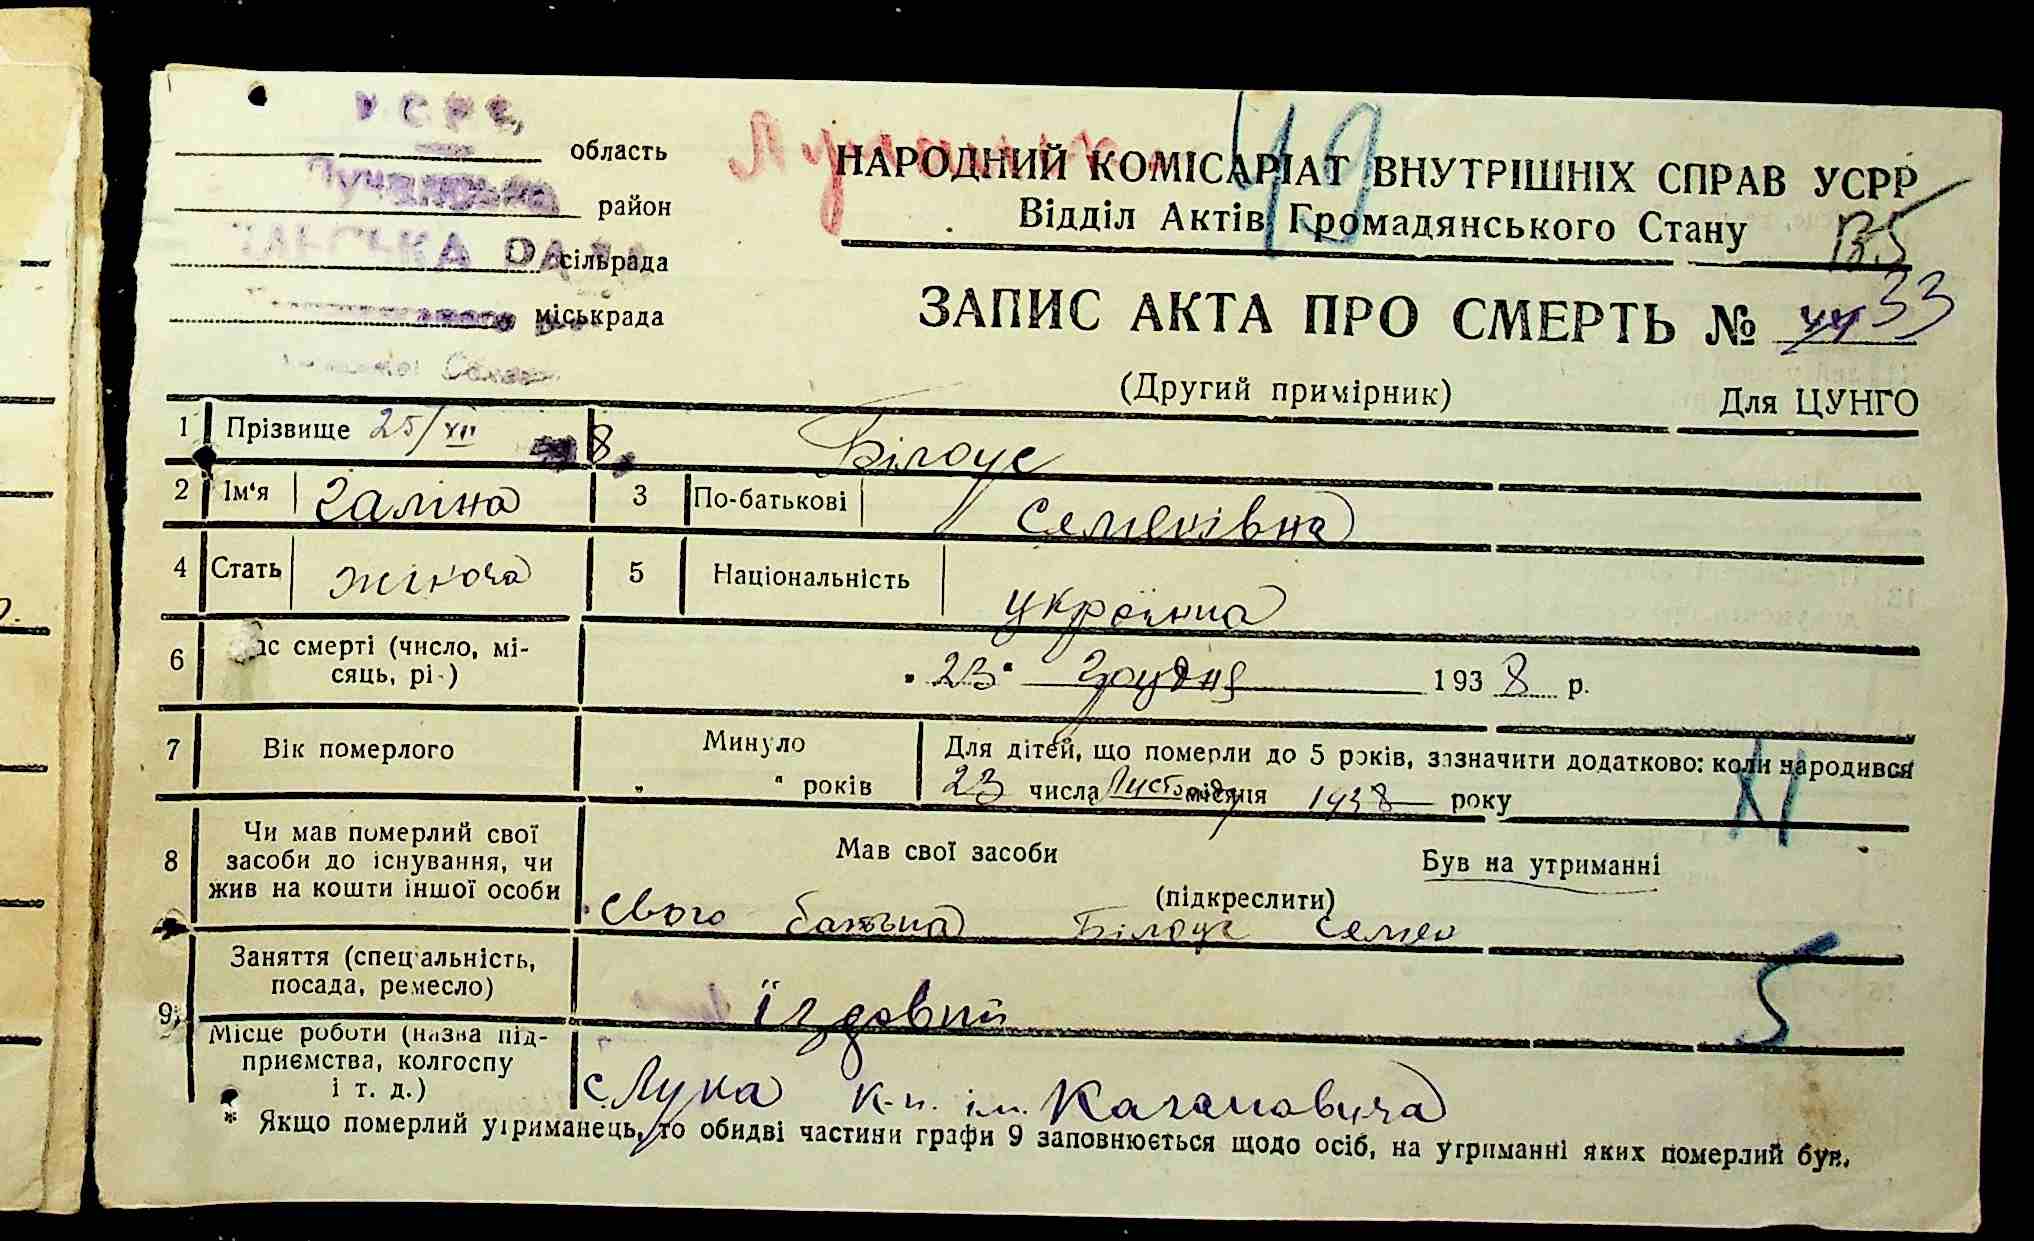 У С Р Р
область
район
РАДА сільрада
міськрада
49
НАРОДНИЙ КОМІСАРІАТ ВНУТРІШНІХ СПРАВ УСРР
Відділ Актів Громадянського Стану
ЗАПИС АКТА ПРО СМЕРТЬ № 33
(Другий примірник) Для ЦУНГО
1 Прізвище 25/XII 8 Білоус
2 Ім'я Галіна 3 По-батькові Семенівна
4 Стать жіноча 5 Національність українка
6 Час смерті (число, мі-
сяць, рі-) „23" Грудня 1938 р.
7 Вік померлого Минуло „ " років
Для дітей, що померли до 5 років, зазначити додатково: коли народився
23 числа Листопаду місяця 1938 року
XI
8 Чи мав померлий свої
засоби до існування, чи
жив на кошти іншої особи
Мав свої засоби Був на утриманні
(підкреслити)
Свого батька Білоус Семен
9 Заняття (спеціальність,
посада, ремесло) Їздовий
5
Місце роботи (назва під-
приємства, колгоспу
і т. д.)
с Лука к-п. ім. Кагановича
* Якщо померлий утриманець, то обидві частини графи 9 заповнюється щодо осіб, на утриманні яких померлий був.